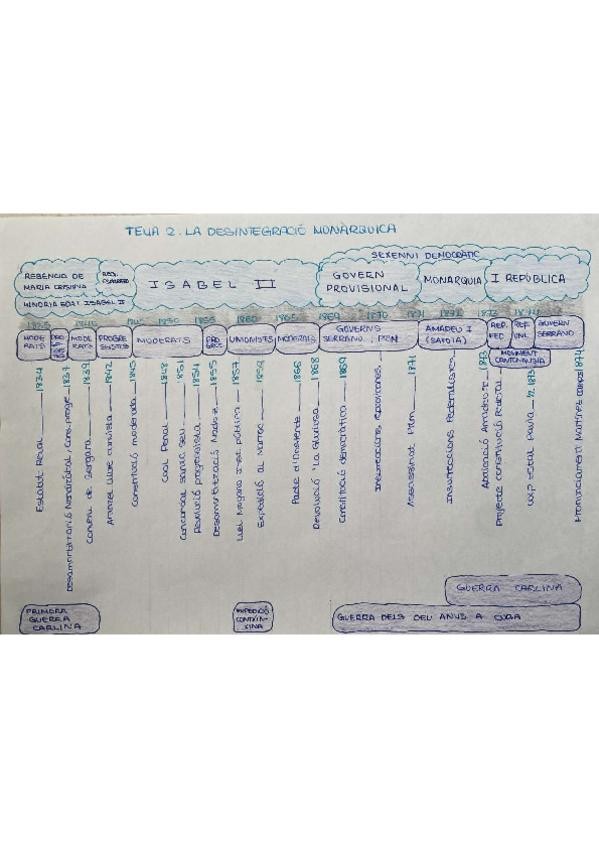 TEMA 2. LA DESINTEGRACIÓ MONÀRQUICA
SEXENNI DEMOCRÀTIC
REGENCIA DE
MARIA CRISTINA
REG.
ESPARTERO
MINORIA EDAT ISABEL II
ISABEL II
GOVERN
PROVISIONAL
MONARQUIA
I REPÚBLICA
1835 1840 1845 1850 1855 1860 1865 1869 1870 1871 1872 1873 1874
MODE
RATS
MODE
RATS
PROGRE
SSISTES
MODERATS
UNIONISTS
MODERATS
GOVERNS
SERRANO, PRIM
AMADEU I
(SAVOIA)
REP.
FED
REP.
UNI.
GOVERN
SERRANO
MOVIMENT
CANTONALISTA
Estatut Reial — 1834
1837
Conveni de Bergara — 1839
1842
Constitució moderada — 1845
Codi Penal — 1848
1851
Revolució progressista — 1854
Desamortització Madoz — 1855
Llei Moyano Inst. pública — 1857
Expedició al Marroc — 1859
Pacte d'Ostende — 1866
Revolució "La Gloriosa" — 1868
Constitució democràtica — 1869
Insurreccions republicanes
Assassinat Prim — 1871
Insurreccions Federalistes
Abdicació Amadeu I — 1873
Projecte constitució Federal
Cop Estat Pavia
Pronunciament Martínez Campos 1874
PRIMERA
GUERRA
CARLINA
EXPEDICIÓ
GUERRA CARLINA
GUERRA DELS DEU ANYS A CUBA